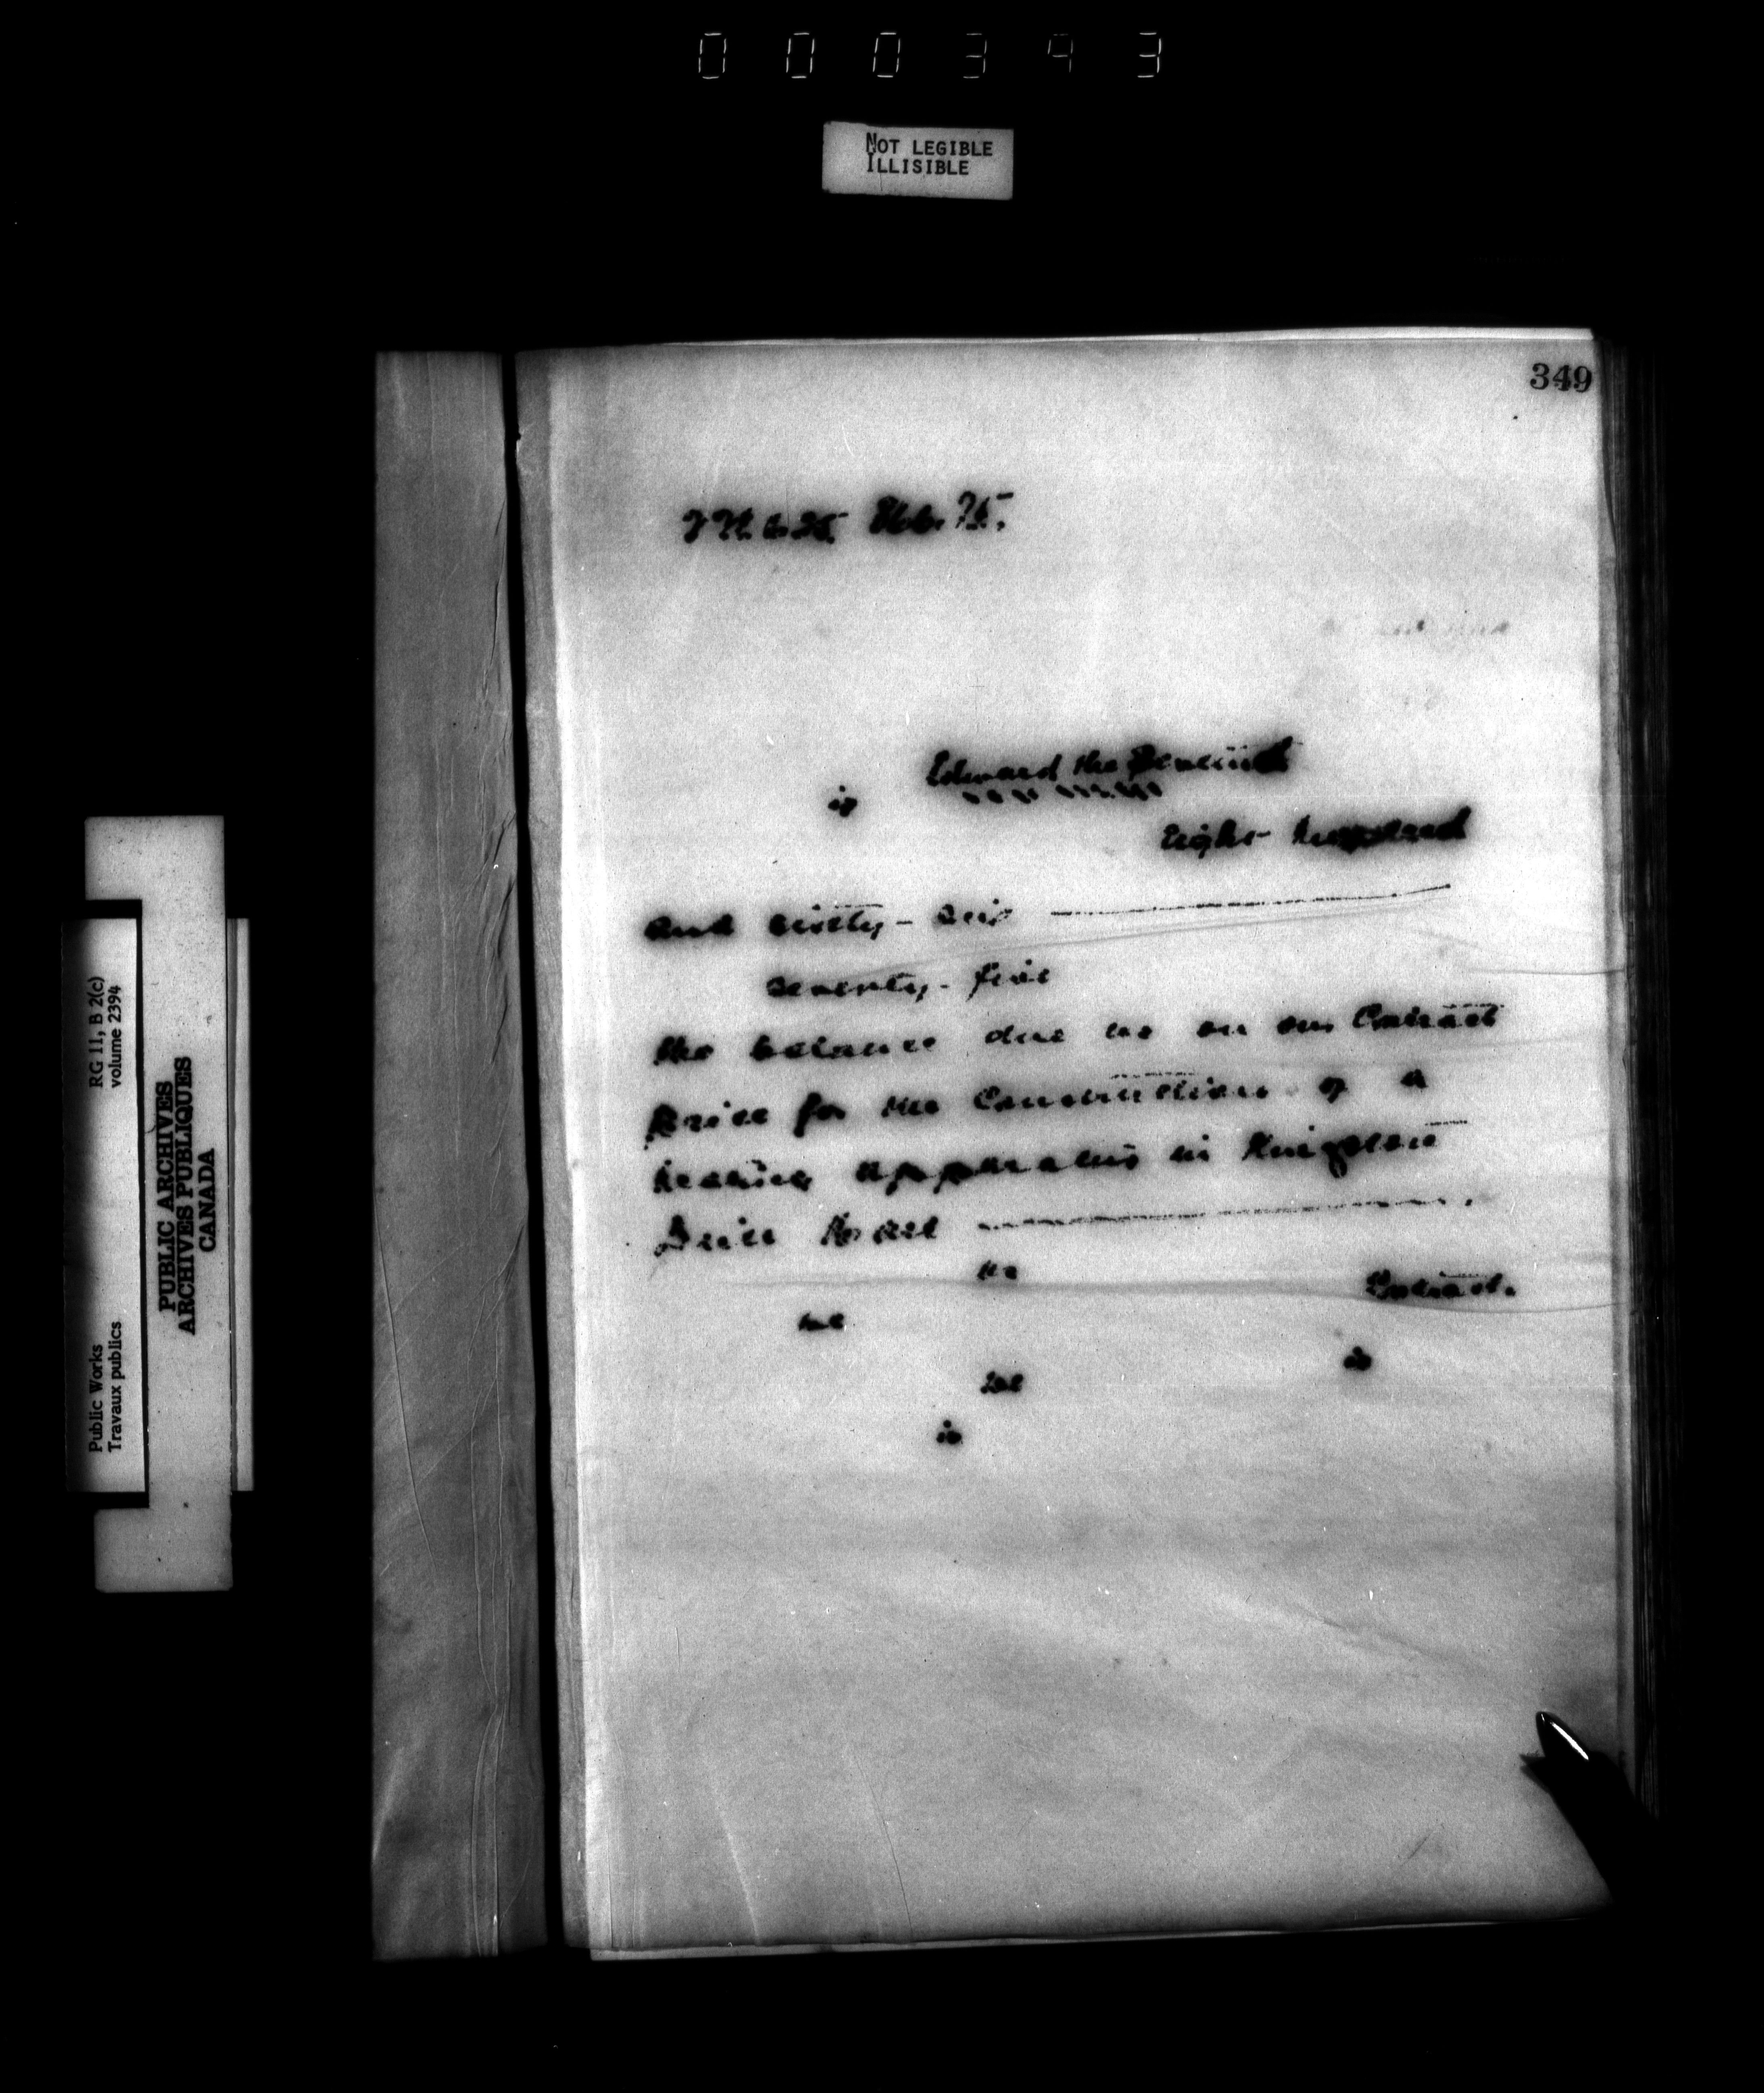 000343
NOT LEGIBLE
ILLISIBLE
349
Edward the Seventh
is
Eight hundred
and sixty-six
seventy-five
the balance due us on our Contract
price for the Construction of a
heating apparatus in Kingston
Drill Hall
Contract.
we
is
we
is
Public Works
Travaux publics
RG 11, B 2(c)
volume 2394
PUBLIC ARCHIVES
ARCHIVES PUBLIQUES
CANADA